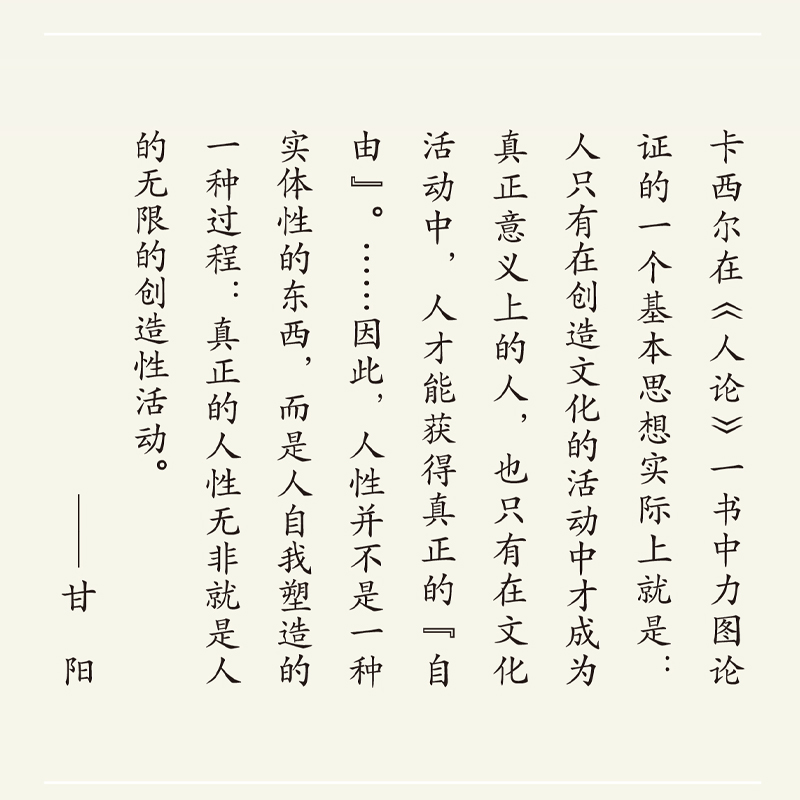 卡西尔在《人论》一书中力图论
证的一个基本思想实际上就是：
人只有在创造文化的活动中才成为
真正意义上的人，也只有在文化
活动中，人才能获得真正的『自
由』。……因此，人性并不是一种
实体性的东西，而是人自我塑造的
一种过程：真正的人性无非就是人
的无限的创造性活动。
——甘 阳